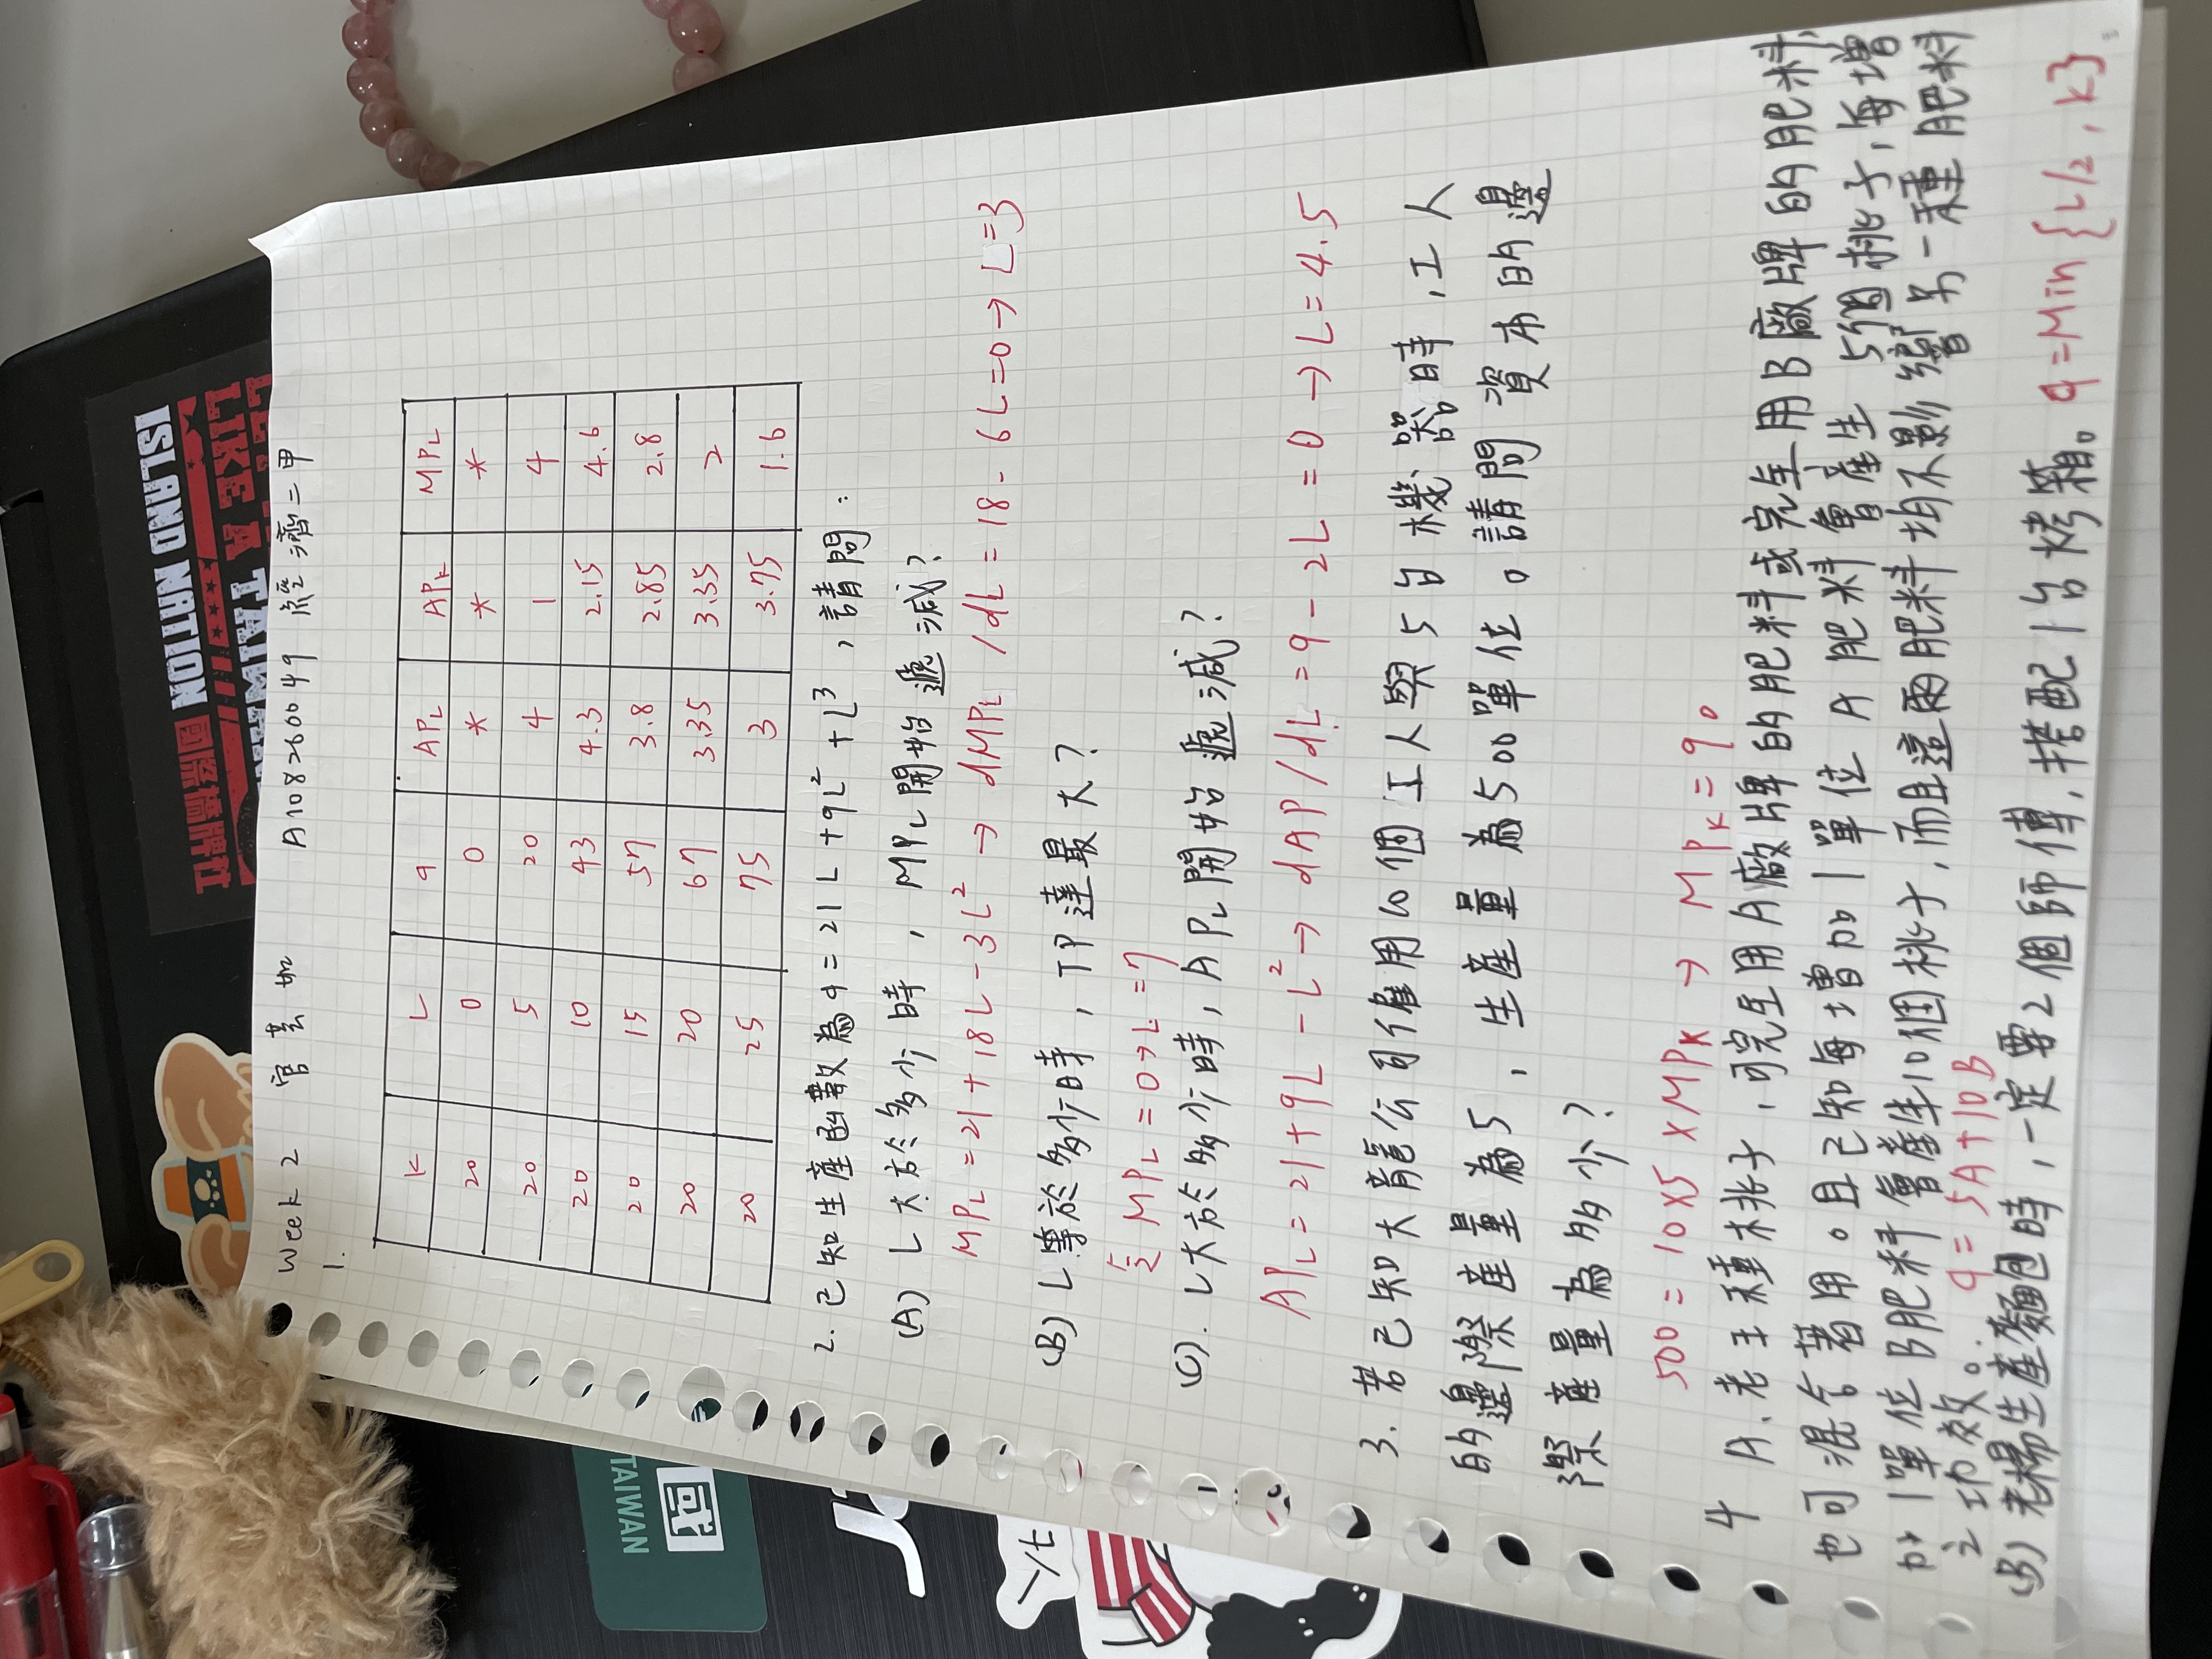 ISLAND NATION
國際橋牌社
LIKE A
TAIWAN
Week 2 官芸如 A108260049 經濟二甲
1.
K L q APL APK MPL
20 0 0 * * *
20 5 20 4 1 4
20 10 43 4.3 2.15 4.6
20 15 57 3.8 2.85 2.8
20 20 67 3.35 3.35 2
20 25 75 3 3.75 1.6
2. 已知生產函數為q = 21L + 9L² + L³ , 請問:
(A) L大於多少時, MPL開始遞減?
MPL = 21 + 18L - 3L² → dMPL / dL = 18 - 6L = 0 → L = 3
(B) L等於多少時, TP達最大?
令 MPL = 0 → L = 7
(C). L大於多少時, APL開始遞減?
APL = 21 + 9L - L² → dAP/dL = 9 - 2L = 0 → L = 4.5
3. 若已知大龍公司僱用10個工人與5台機器時, 工人
的邊際產量為5, 生產量為500單位。請問資本的邊
際產量為多少?
500 = 10×5 × MPK → MPK = 90
4 A. 老王種桃子, 可完全用A廠牌的肥料或完全用B廠牌的肥料,
也可混合著用。且已知每增加1單位A肥料會產生5個桃子, 每增
加1單位B肥料會產生10個桃子, 而且這兩肥料均不影響另一種肥料
之功效。. q = 5A + 10B
(B) 老楊生產麵包時, 一定要2個師傅, 搭配1台烤箱。 q = Min {L/2, K}
TAIWAN